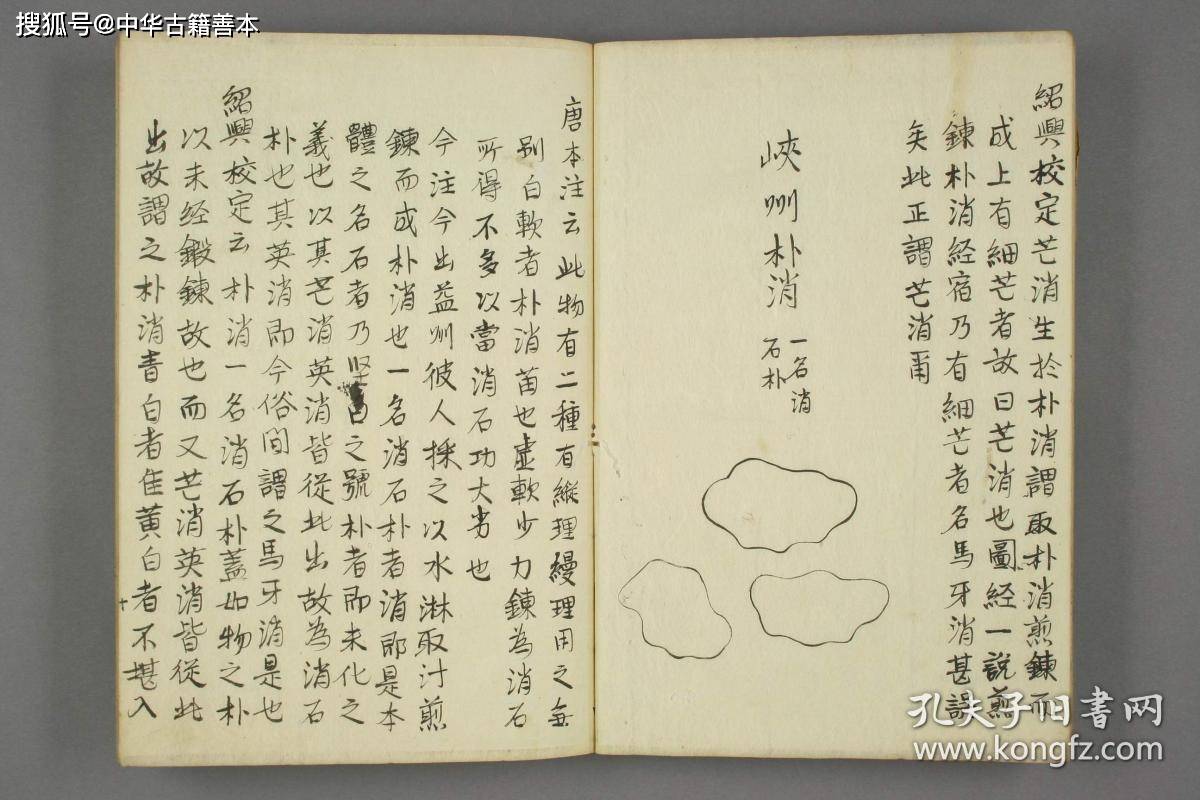 搜狐号@中华古籍善本
紹興校定芒消生於朴消謂取朴消煎鍊而
成上有細芒者故曰芒消也圖經一說煎
鍊朴消経宿乃有細芒者名馬牙消甚誤
矣此正謂芒消甭
峽州朴消
一名消
石朴
唐本注云此物有二種有縱理縵理用之無
别白軟者朴消苗也虛軟少力鍊為消石
所得不多以當消石功大劣也
今注今出益州彼人採之以水淋取汁煎
鍊而成朴消也一名消石朴者消即是本
體之名石者乃坚白之號朴者即未化之
義也以其芒消英消皆從此出故為消石
朴也其英消即今俗間謂之馬牙消是也
紹興校定云朴消一名消石朴蓋如物之朴
以未経鍛鍊故也而又芒消英消皆從此
出故謂之朴消青白者佳黄白者不堪入
孔夫子旧书网
www.kongfz.com